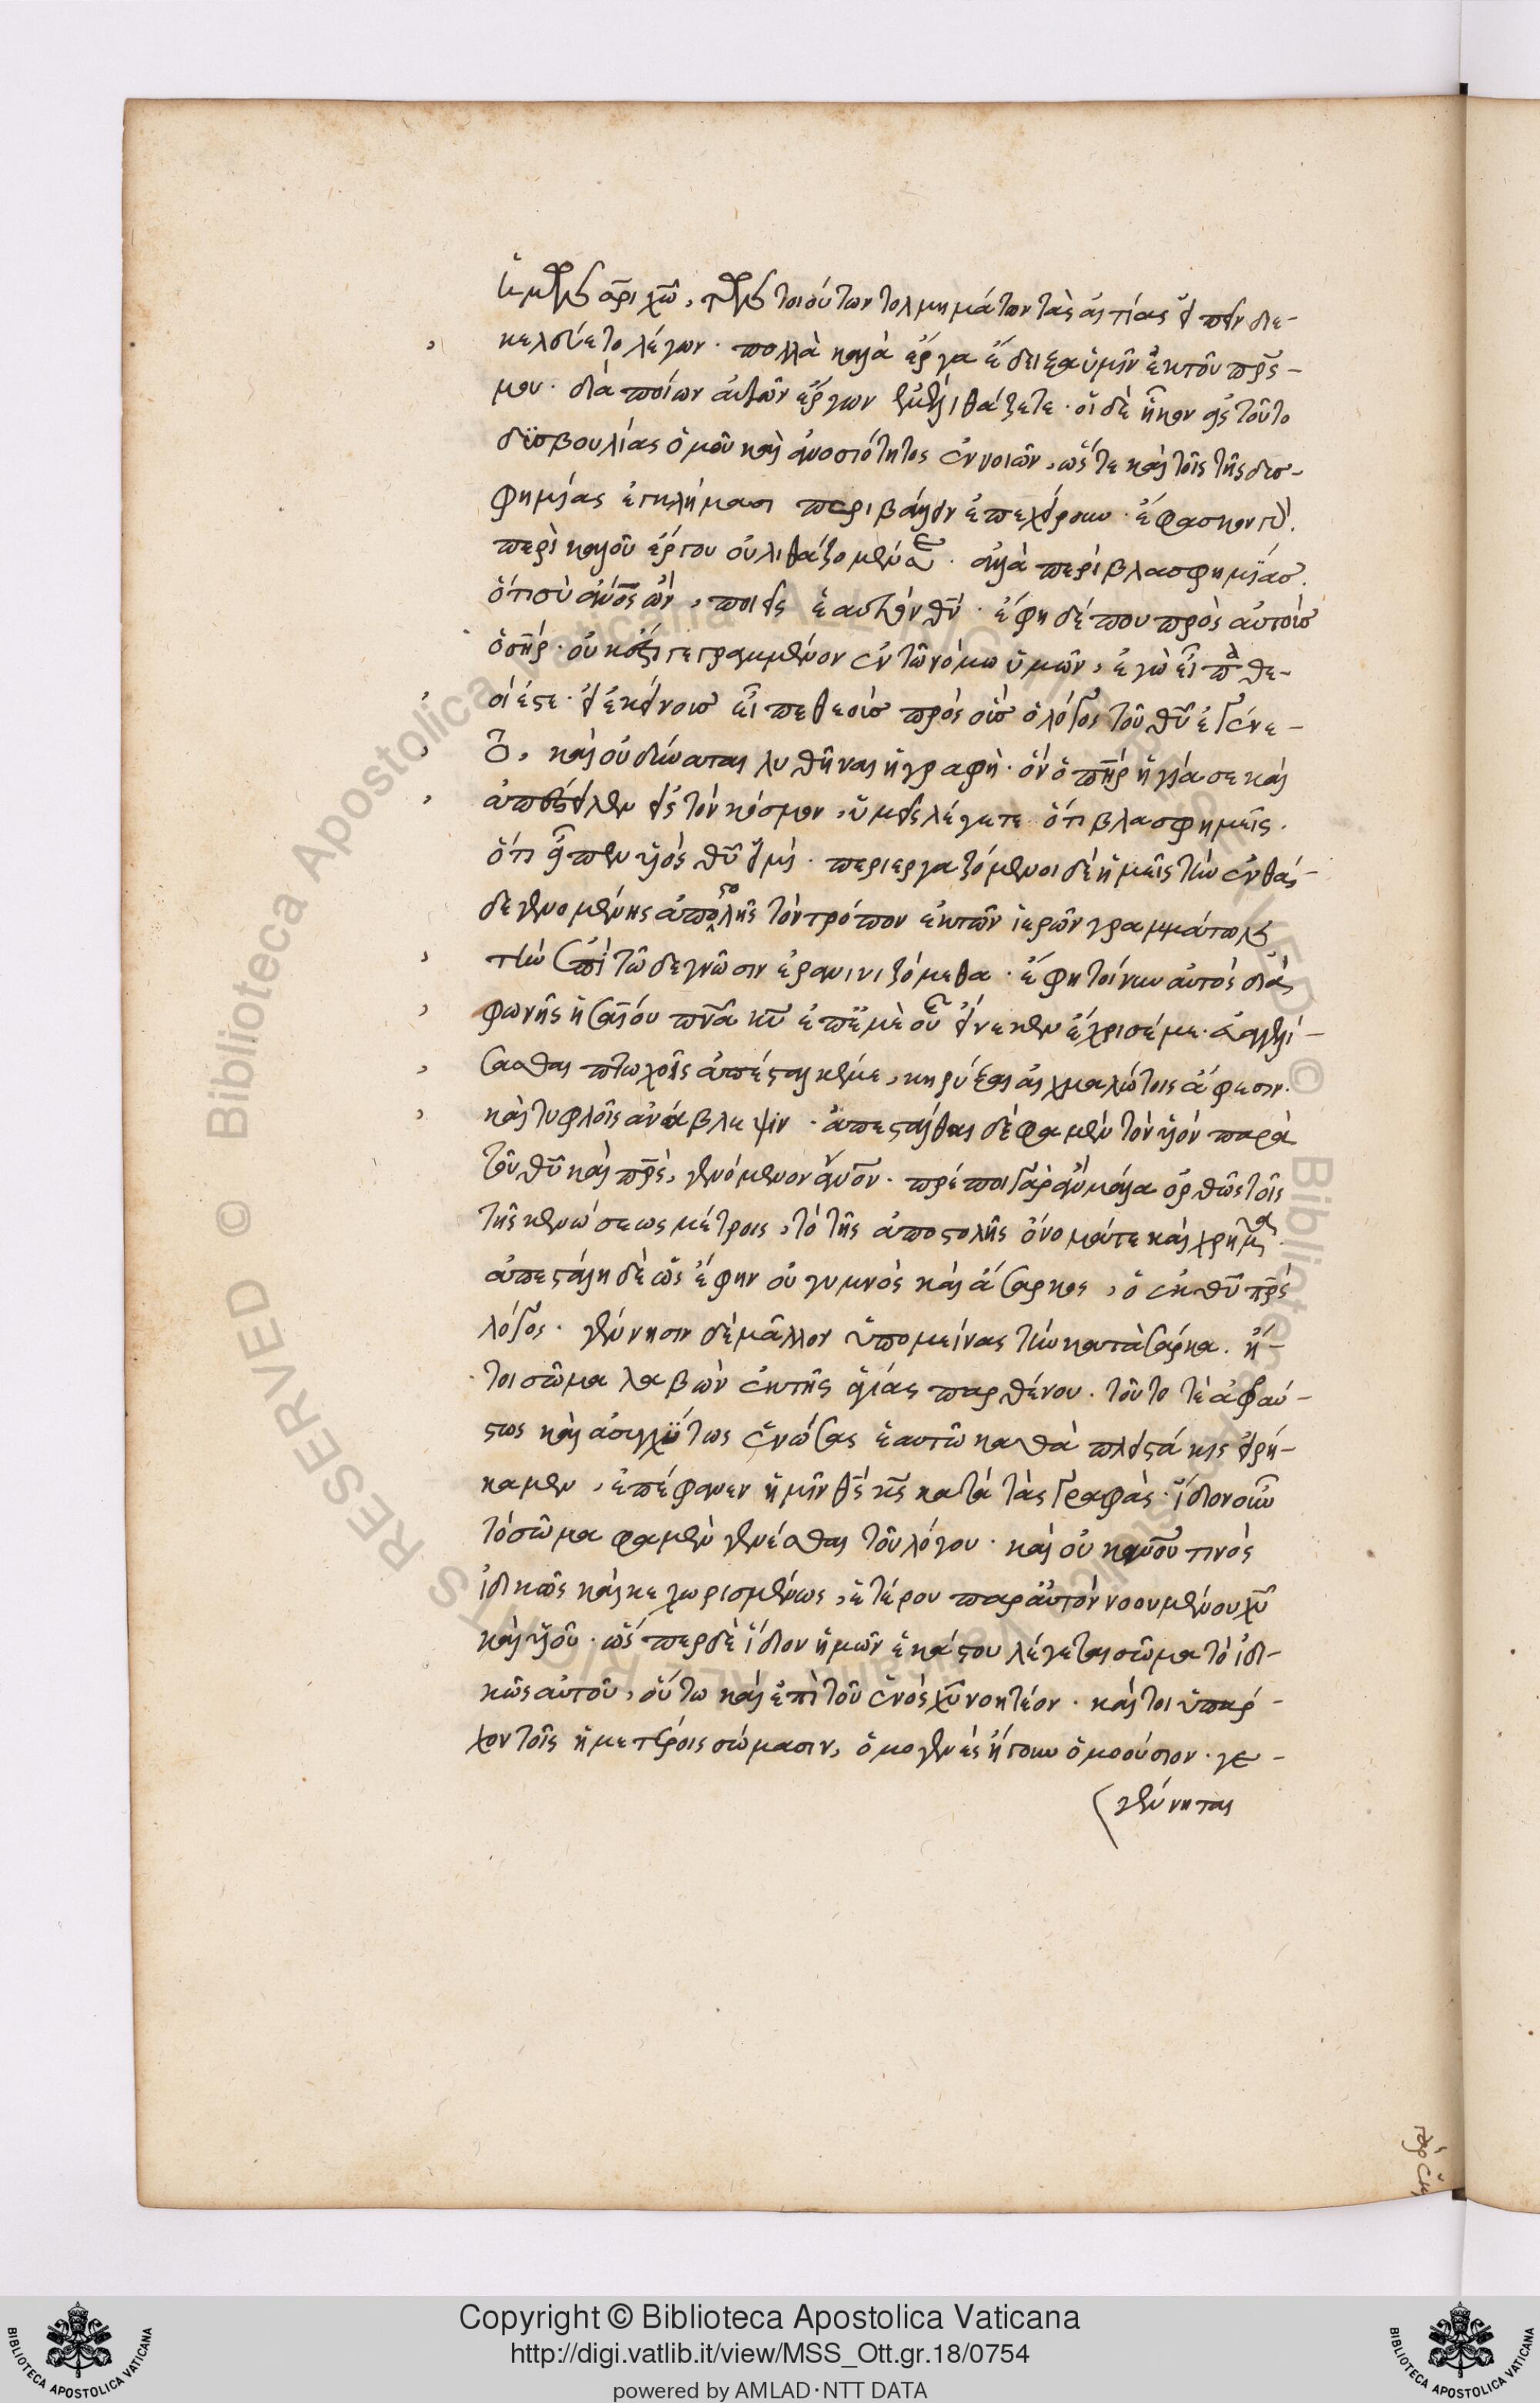 κελεύετο λέγων· πολλὰ καλὰ ἔργα ἔδειξα ὑμῖν ἐκ τοῦ πρς-
μου· διὰ ποῖον αὐτῶν ἔργον λιθάζετε· οἱ δὲ ἧκον εἰς τοῦτο
δυσβουλίας ὁμοῦ καὶ ἀνοσιότητος ἐννοιῶν, ὥστε καὶ τοῖς τῆς δυσ-
φημίας ἐγκλήμασι περιβάλλειν ἐπεχείρουν· ἔφασκον
περὶ καλοῦ ἔργου οὐ λιθάζομέν σε· ἀλλὰ περὶ βλασφημίας·
ὅτι σὺ ἄνος ὢν, ποιεῖς ἑαυτὸν θν· ἔφη δέ που πρὸς αὐτοὺς
ὁ σηρ· οὐκ ἔστι γεγραμμένον ἐν τῷ νόμω ὑμῶν, ἐγὼ εἶπα θε-
οί ἐστε· εἰ ἐκείνους εἶπε θεοὺς πρὸς οὓς ὁ λόγος τοῦ θυ ἐγένε-
το, καὶ οὐ δύναται λυθῆναι ἡ γραφὴ· ὃν ὁ πηρ ἡγίασε καὶ
ἀπέστειλεν εἰς τὸν κόσμον, ὑμεῖς λέγετε ὅτι βλασφημεῖς·
ὅτι εἶπον υἱὸς θυ εἰμί· περιεργαζόμενοι δὲ ἡμεῖς τὴν ἐνθά-
δε γενομένης ἀποστολῆς τὸν τρόπον ἐκ τῶν ἱερῶν γραμμάτων
τὴν ἐπὶ τῶδε γνῶσιν ἐρανιζόμεθα· ἔφη τοίνυν αὐτὸς διὰ
φωνῆς ἡσαΐου πνα κυ ἐπ' ἐμὲ οὗ εἵνεκεν ἔχρισέ με· εὐαγγελί-
σασθαι πτωχοῖς ἀπέσταλκέ με, κηρύξαι αἰχμαλώτοις ἄφεσιν·
καὶ τυφλοῖς ἀνάβλεψιν· ἀπεστάλθαι δέ φαμεν τὸν υἱὸν παρὰ
τοῦ θυ καὶ πρς, γενόμενον ἄνον· πρέποι γὰρ ἂν μάλα ὀρθῶς τοῖς
τῆς κενώσεως μέτροις, τὸ τῆς ἀποστολῆς ὄνομά τε καὶ χρῆμα
ἀπεστάλη δὲ ὡς ἔφην οὐ γυμνὸς καὶ ἄσαρκος, ὁ ἐκ θυ πρς
λόγος· γέννησιν δὲ μᾶλλον ὑπομείνας τὴν κατὰ σάρκα· ἤ-
τοι σῶμα λαβὼν ἐκ τῆς ἁγίας παρθένου· τοῦτό τε ἀφρά-
στως καὶ ἀσυγχύτως ἑνώσας ἑαυτῶ καθὰ πλειστάκις εἰρή-
καμεν, ἐπέφανεν ἡμῖν θς κς κατὰ τὰς γραφάς· ἴδιον οὖν
τὸ σῶμα φαμὲν γενέσθαι τοῦ λόγου· καὶ οὐκ ἄνου τινὸς
ἰδικῶς καὶ κεχωρισμένως, ἑτέρου παρ' αὐτὸν νοουμένου χυ
καὶ υἱοῦ· ὥσπερ δὲ ἴδιον ἡμῶν ἑκάστου λέγεται σῶμα τὸ ἰδι-
κῶς αὐτοῦ, οὕτω καὶ ἐπὶ τοῦ ἑνὸς χυ νοητέον· καίτοι ὑπάρ-
χον τοῖς ἡμετέροις σώμασιν, ὁμογενὲς ἤγουν ὁμοούσιον· γε-
γέννηται
Copyright © Biblioteca Apostolica Vaticana
http://digi.vatlib.it/view/MSS_Ott.gr.18/0754
powered by AMLAD·NTT DATA